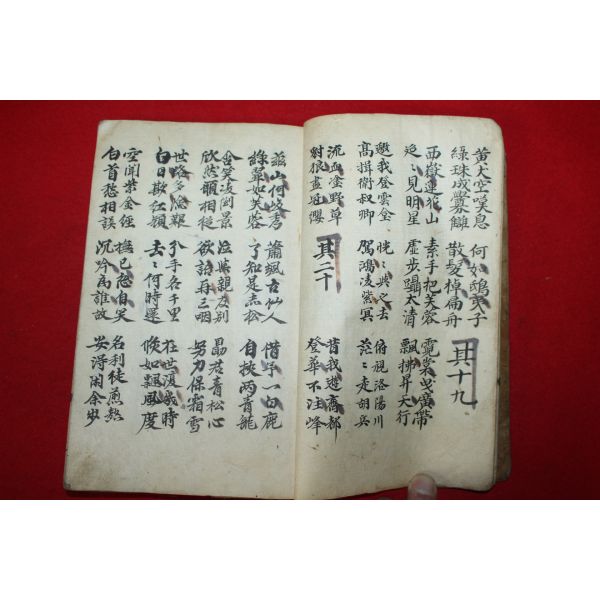 黄犬空嘆息
綠珠成釁讎
何如鴟夷子
散髮棹扁舟
其十九
西嶽蓮花山
迢〻見明星
素手把芙蓉
虛步躡太清
霓裳曳廣帶
飄拂昇天行
邀我登雲臺
高揖衛叔卿
恍〻與之去
駕鴻凌紫冥
俯視洛陽川
茫〻走胡兵
流血塗野草
豺狼盡冠纓
其二十
昔我遊齊都
登華不注峰
茲山何峻秀
綠翠如芙蓉
蕭颯古仙人
了知是赤松
借予一白鹿
自挾兩青龍
含笑凌倒景
欣然願相從
泣與親友別
欲語再三咽
勗君青松心
努力保霜雪
世路多險艱
白日欺紅顏
分手各千里
去〻何時還
在世復幾時
倏如飄風度
空聞紫金經
白首愁相誤
撫己忽自笑
沉吟為誰故
名利徒煎熬
安得閑余步